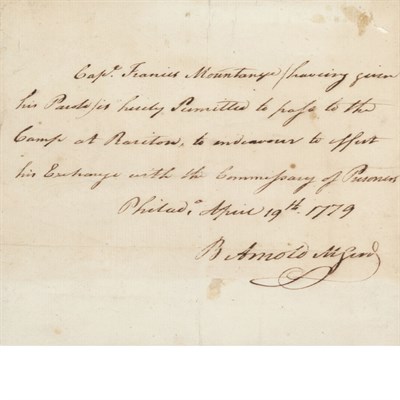 Capt. Francis Mountange (having given
his Parole) is hereby Permitted to pass to the
Camp at Rariton, to endeavour to effect
his Exchange with the Commissary of Prisoners
Philad.a April 19th. 1779
B Arnold M Genl